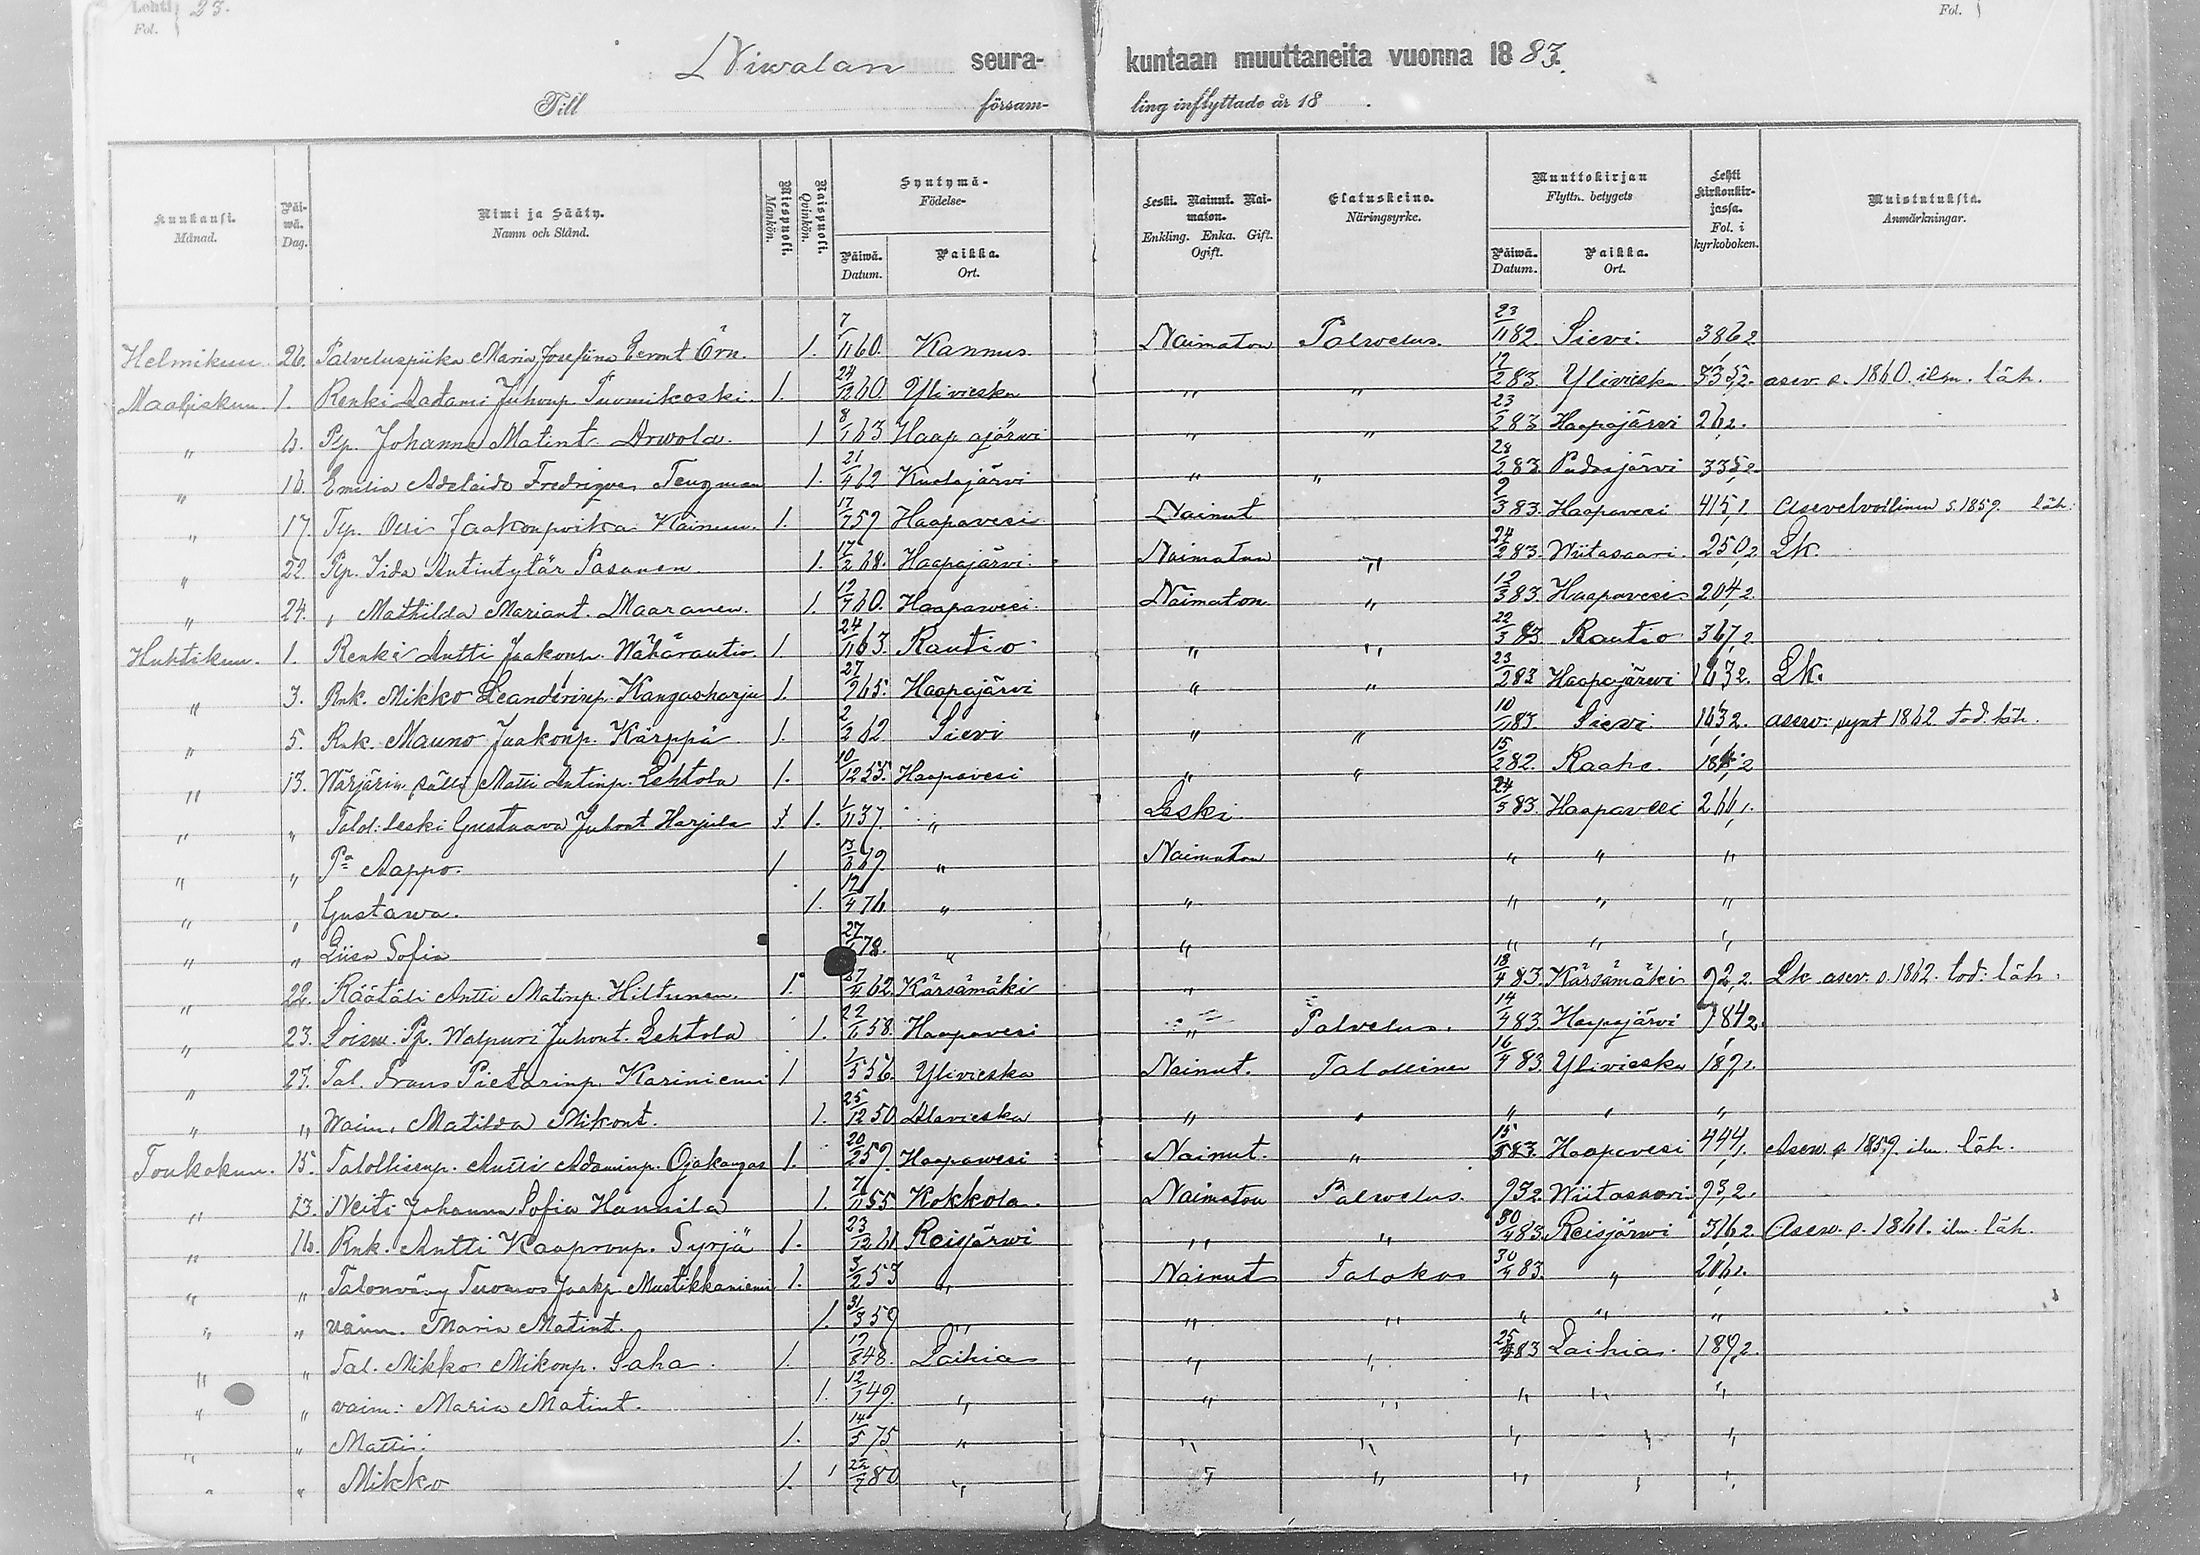 Lehti 23.
Fol.
Fol.
Niwalan seurakuntaan muuttaneita vuonna 1883.
Till församling inflyttade år 18 .
Kuukausi. Månad. Päiwä. Dag. Nimi ja Sääty. Namn och Stånd. Miespuoli. Mankön. Naispuoli. Qvinkön. Syntymä- Födelse- Päiwä. Datum. Paikka. Ort. Leski. Nainut. Naimaton. Enkling. Enka. Gift. Ogift. Elatuskeino. Näringsyrke. Muuttokirjan Flyttn. betygets Päiwä. Datum. Paikka. Ort. Lehti kirkonkirjassa. Fol. i kyrkoboken. Muistutuksia. Anmärkningar.
Helmikuu 26. Palveluspiika Maria Josefiina Örn. 1. 7/11 60. Kannus. Naimaton Palwelus. 23/11 82 Sievi. 386,2
Maaliskuu. 1. Renki Aatami Juhonp. Tuomikoski. 1. 24/12 60. Ylivieska „ „ 12/2 83. Ylivieska 335,2. asev. s. 1860. ilm. läh.
„ 6. Pp. Johanna Matint. Arwola. 1 8/1 63 Haapajärwi „ „ 23/2 83 Haapajärvi 26,2.
„ 16. Emilia Adelaide Tengman 1. 21/4 62 Kuolajärvi „ „ 28/2 83. Pudasjärvi 335,2
„ 17. Jaakonpoika Käinum. 1. 17/7 59 Haapavesi Nainut 2/3 83. Haapavesi 415,1 Asevelvollinen s. 1859. läh.
„ 22. Pp. Iida Antintytär Pasanen 1. 17/2 68. Haapajärvi. Naimaton „ 24/2 83. Wiitasaari. 250,2 Lk.
„ 24. „ Mathilda Mariant. Maaranen. 1. 12/7 60. Haapawesi. Naimaton „ 12/3 83. Haapavesi 204,2.
Huhtikuu. 1. Renki Antti Jaakonp. Wähärautio. 1. 24/11 63. Rautio „ „ 22/3 83. Rautio 367,2
„ 3. Rnk. Mikko Leanderinp. Kangasharju 1. 27/9 65. Haapajärvi „ „ 23/2 83 Haapajärwi 163,2. Lk.
„ 5. Rnk. Mauno Jaakonp. Kärppä 1. 2/2 62 Sievi „ „ 10/1 83. Sievi. 163,2. asew: synt 1862 tod. läh.
„ 13. Wärjärin sälli Matti Antinp. Lehtola 1. 10/12 55. Haapavesi „ „ 15/2 82. Raahe
„ „ Talol: leski Gustaava Juhont Harjula 1. 1/11 37. „ Leski 24/3 83. Haapavesi 266,1.
„ „ Pa Aappo. 1 13/6 69 „ Naimaton „ „ „
„ „ Gustawa. 1. 17/4 76 „ „ „ „ „
„ „ Liisa Sofia 27/ 78. „ „ „ „ „
„ 22. Räätäli Antti Matinp. Hiltunen. 1. 27/4 62. Kärsämäki „ 18/4 83. Kärsämäki 92,2. Lk asev. s. 1862. tod: läh.
„ 23. Pp. Walpuri Juhont. Lehtola 1. 22/1 58. Haapavesi „ Palvelus. 14/4 83. Haapajärvi 84,2.
„ 27. Tal. Frans Pietarinp. Kariniemi 1 1/5 56. Ylivieska Nainut. Talollinen 16/4 83. Ylivieska 189,1.
„ „ Waim. Matilda Mikont. 1. 25/12 50 Alavieska „ „ „ „ „
Toukokuu. 15. Talollisenp. Antti Adaminp. Ojakangas 1. 20/2 59. Haapawesi Nainut. „ 15/5 83. Haapavesi 444,1. Asew s. 1859. ilm. läh.
„ 23. Neiti Johanna Sofia Hannila 1. 7/11 55 Kokkola. Naimaton Palwelus. Wiitasaari 93,2.
„ 16. Rnk. Antti Kaaponp. Syrjä 1. 23/12 61 Reisjärwi „ „ 30/4 83. Reisjärwi 316,2 Asew. s. 1861. ilm. läh.
„ „ Talonväv Tuomas Jaakp Mustikkaniemi 1. 3/2 53 „ Nainut Talokas 30/4 83. „
„ „ vaim. Maria Matint. 1. 31/3 59 „ „ „ „ „ „
„ „ Tal. Mikko Mikonp. Saha. 1. 17/8 48. Laihia „ „ 25/4 83 Laihia. 189,2.
„ „ vaim: Maria Matint. 1. 12/1 49. „ „ „ „ „ „
„ „ Matti. 1. 14/5 75 „ „ „ „ „ „
„ „ Mikko 1. 1 22/7 80 „ „ „ „ „ „